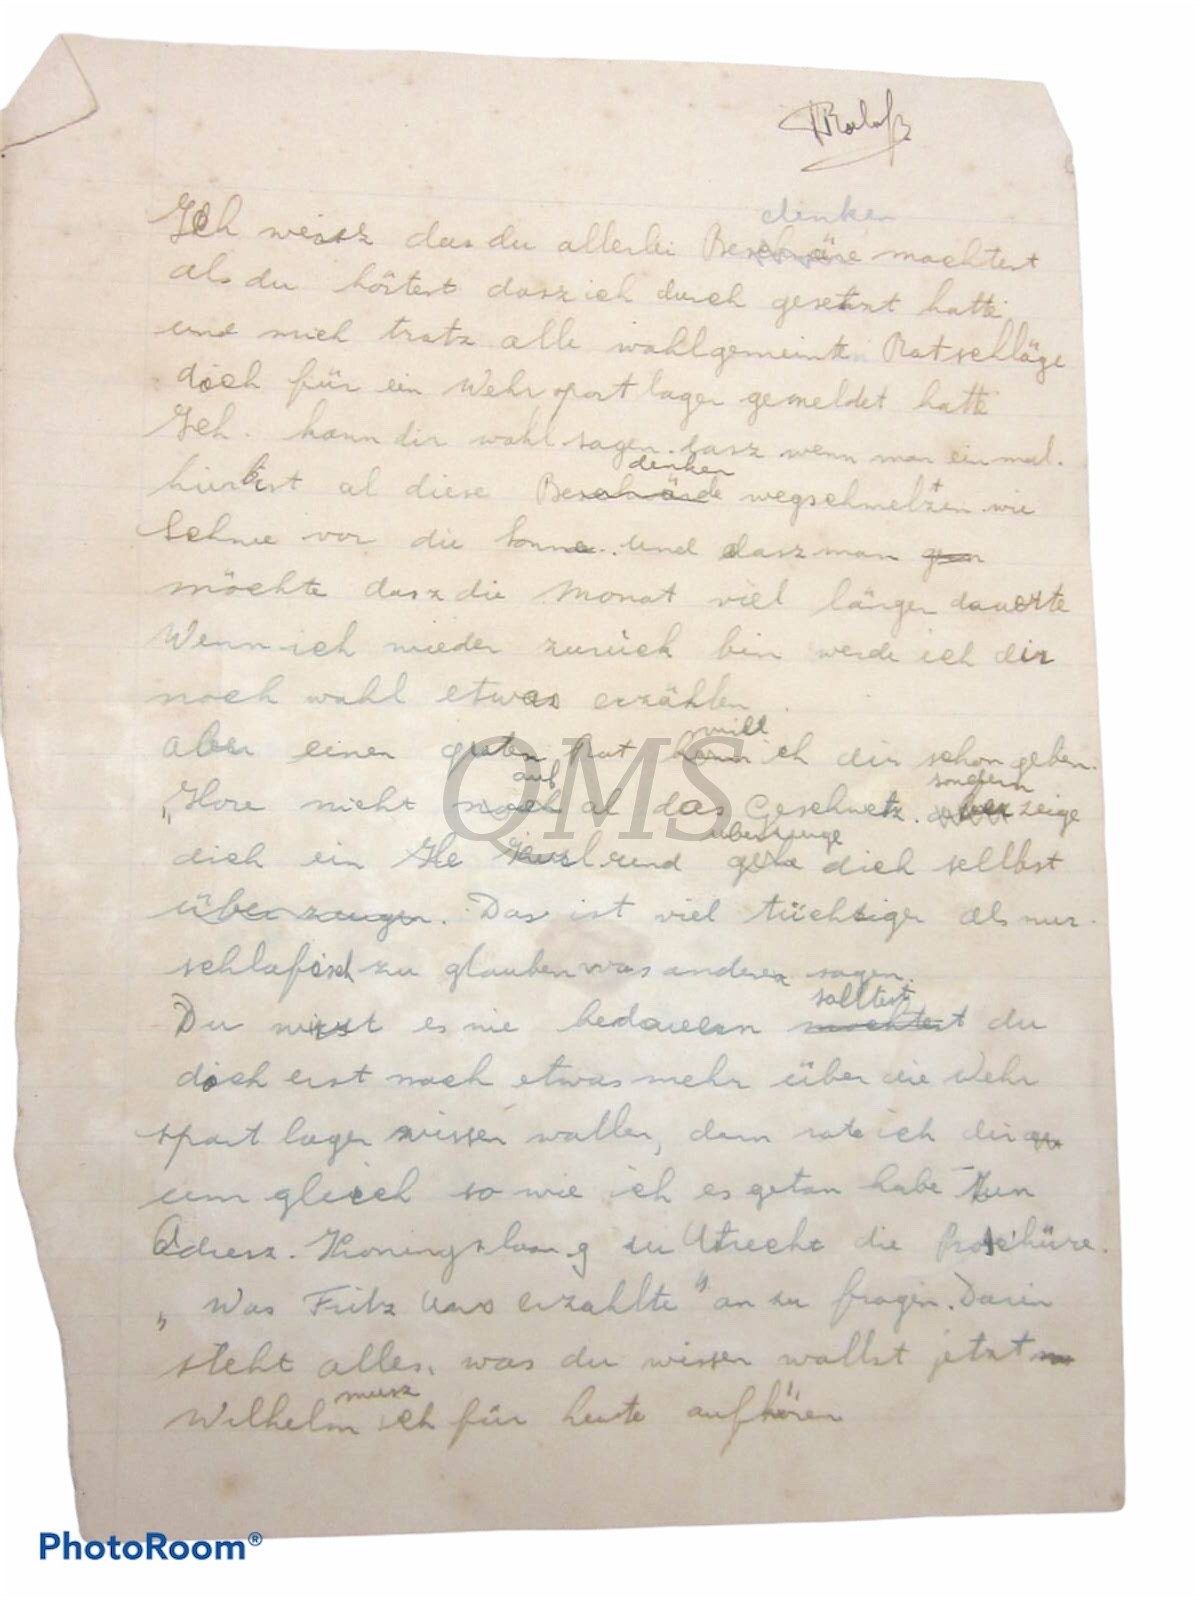 denken
Ich weisz das du allerlei Beschwäre machtest
als du hörtest dasz ich durch gesetzt hatte
und mich trotz alle wohlgemeinten Ratschläge
doch für ein Wehrsportlager gemeldet hatte
Ich. kann dir wohl sagen. dasz wenn man einmal.
denken
hier bist al diese wegschmeltzen wie
Schnee vor die Sonne. und dasz man
möchte dasz die Monat viel länger dauerte
Wenn ich wieder zurück bin werde ich dir
noch wohl etwas erzählen.
will
aber einen guten Rat kann ich dir schon geben.
auf sondern
„Hore nicht noch al das Geschwetz. zeige
überzeuge
dich ein He Kerl und gehe dich sellbst
überzeugen. Das ist viel tüchtiger als nur.
schlafisch zu glauben was anderen sagen.
solltest
Du wirst es nie bedauern möchtest du
doch erst noch etwas mehr über die Wehr
sport lager wissen wollen, dann rate ich dir
um gleich so wie ich es getan habe zum
Adresz. Koningslaan 9 zu Utrecht die Broschüre.
„Was Fritz Uns erzahlte" an zu fragen. Darin
steht alles, was du wissen wollst jetzt
musz
Wilhelm ich für heute aufhören
QMS
PhotoRoom®